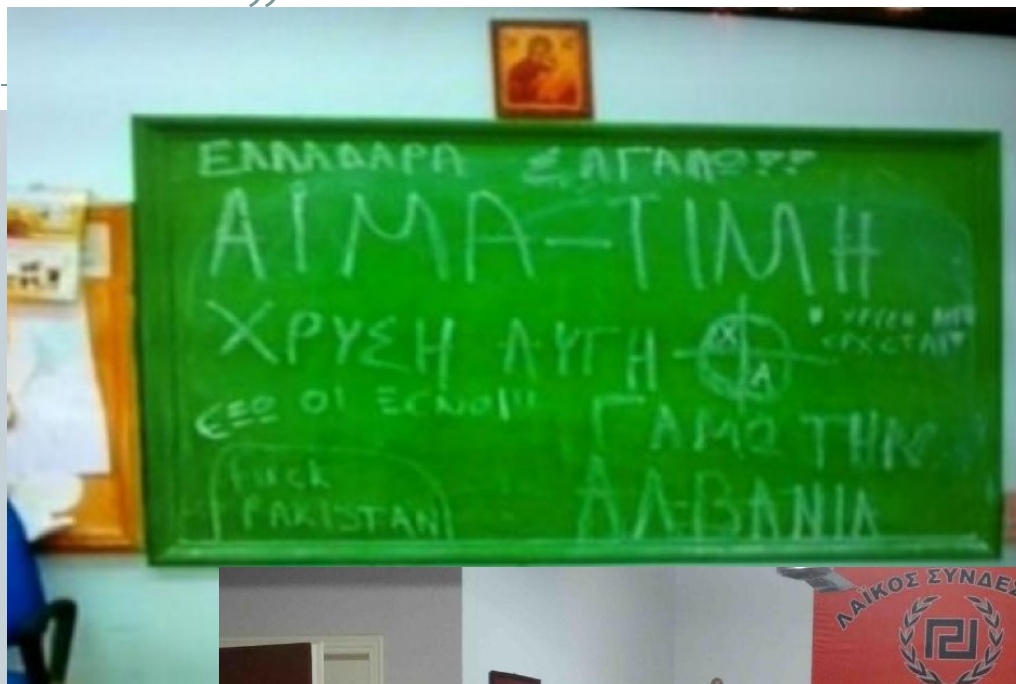 ΕΛΛΑΔΑΡΑ Σ ΑΓΑΠΩ!!!
ΑΙΜΑ-ΤΙΜΗ
ΧΡΥΣΗ ΑΥΓΗ
Χ
Α
Η ΧΡΥΣΗ
ΕΡΧΕΤΑΙ
ΕΞΩ ΟΙ ΞΕΝΟΙ!!
ΓΑΜΩ ΤΗΝ
ΑΛΒΑΝΙΑ
Fuck
PAKISTAN
ΛΑΪΚΟΣ ΣΥΝΔΕΣ